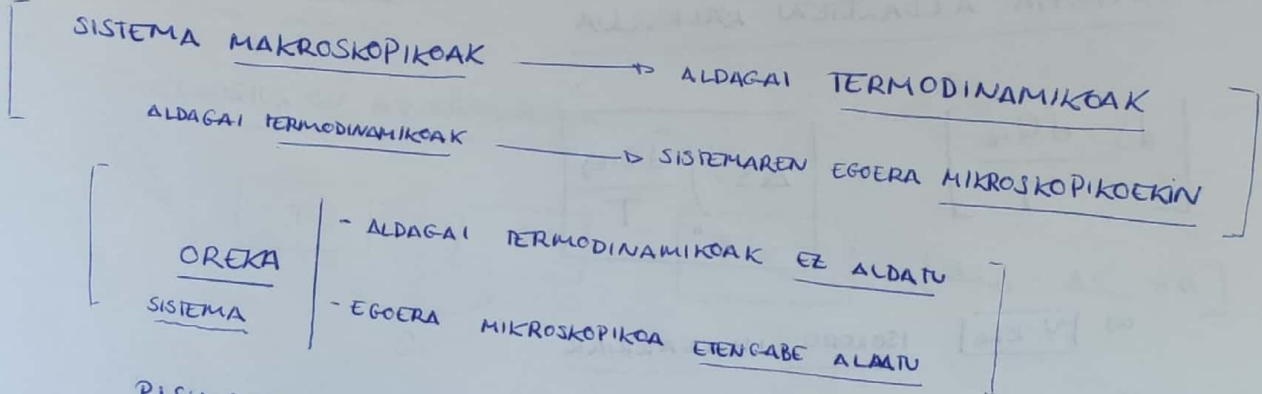 SISTEMA MAKROSKOPIKOAK → ALDAGAI TERMODINAMIKOAK
ALDAGAI TERMODINAMIKOAK → SISTEMAREN EGOERA MIKROSKOPIKOEKIN
OREKA
SISTEMA
- ALDAGAI TERMODINAMIKOAK EZ ALDATU
- EGOERA MIKROSKOPIKOA ETENGABE ALDATU